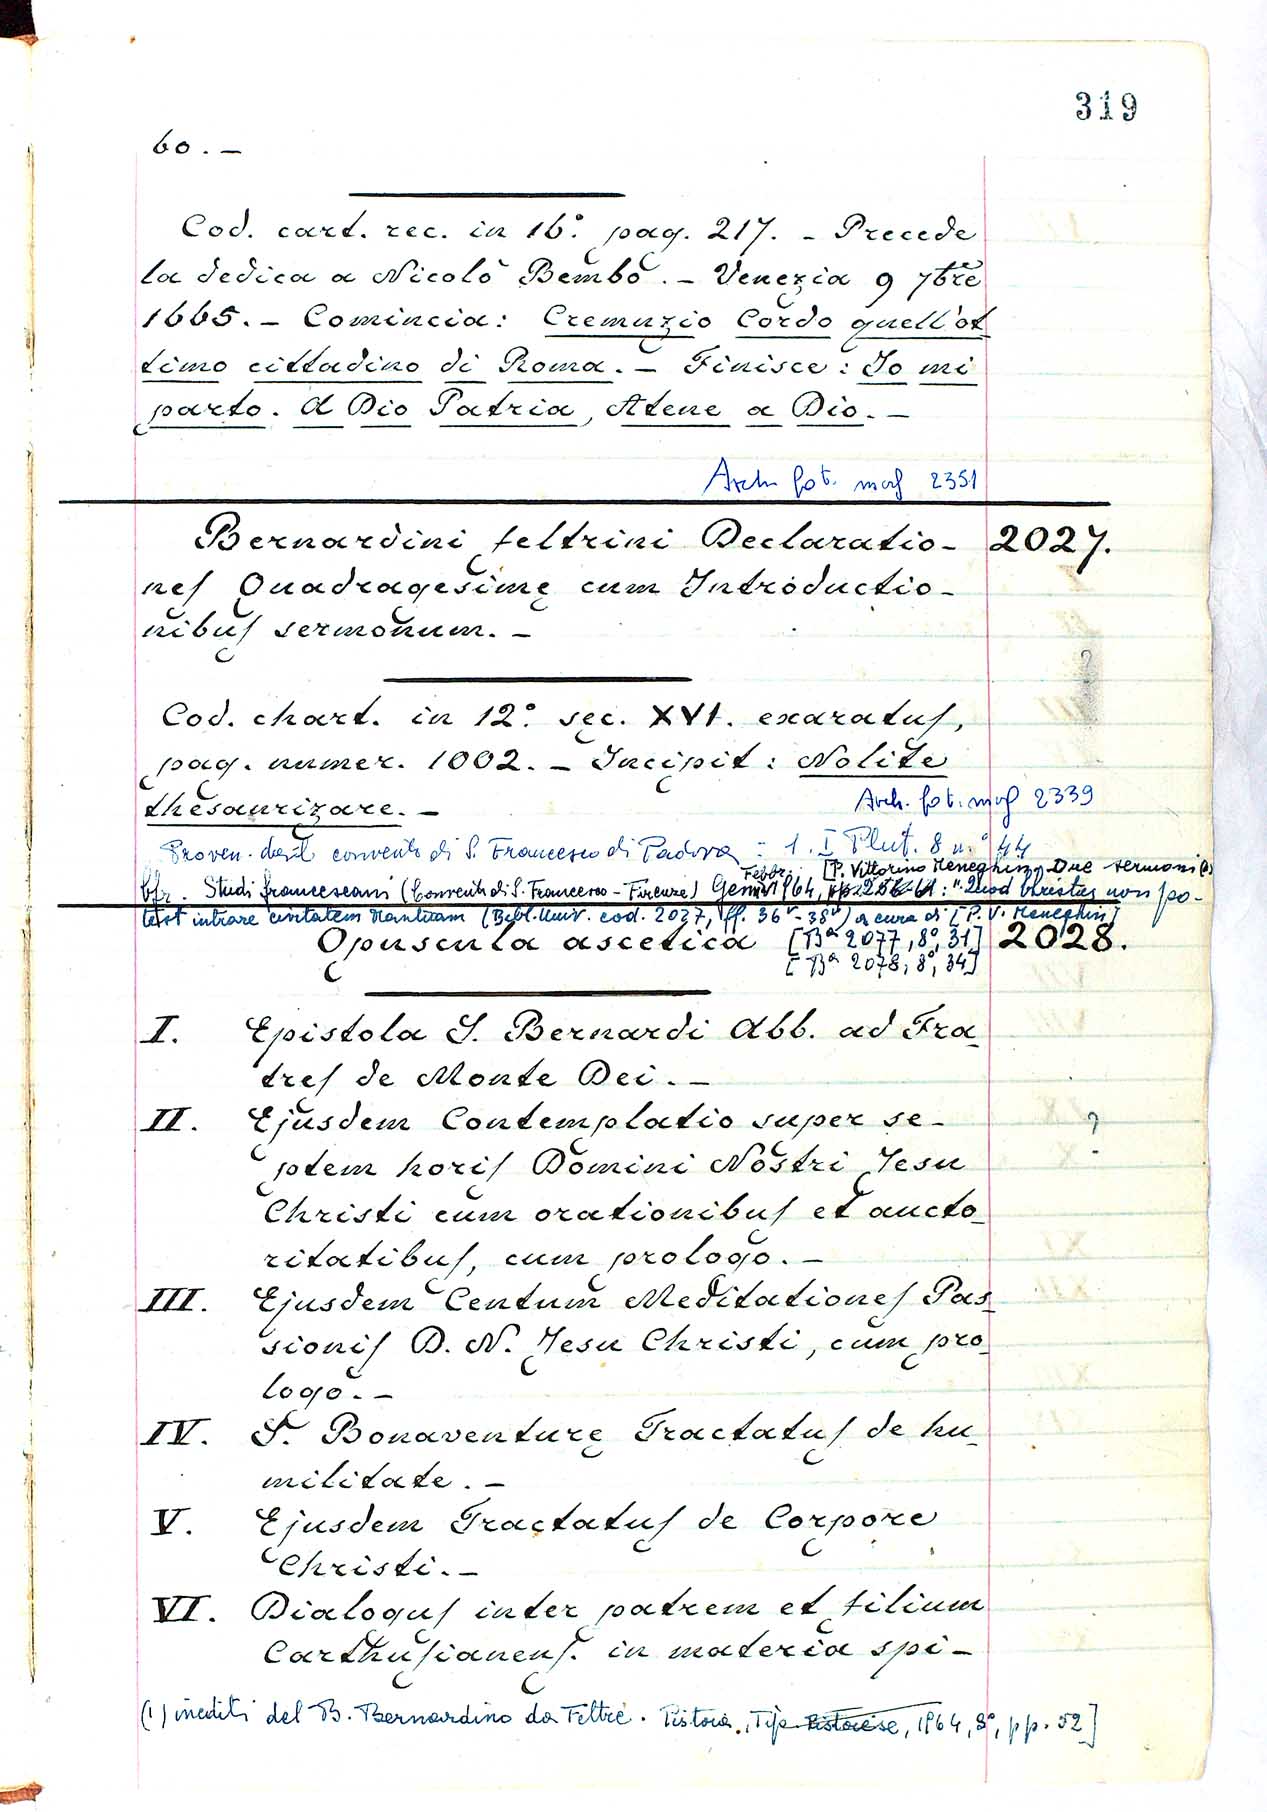 319
bo. –
Cod. cart. rec. in 16.° pag. 217. – Precede
la dedica a Nicolò Bembo. – Venezia 9 7bre
1665. – Comincia: Cremuzio Cordo quell'ot
timo cittadino di Roma. – Finisce: Io mi
parto. A Dio Patria, Atene a Dio. –
Arch. fot. 2351
Bernardini feltrini Declaratio– 2027.
nes Quadragesimę cum Introductio–
nibus sermonum. –
Cod. chart. in 12.° sec. XVI. exaratus,
pag. numer. 1002. – Incipit: Nolite
thesaurizare. –
Arch. fot. 2339
Proven. dal convento di S. Francesco di Padova : 1. I Plut. 8 n.° 44
Febbr. [P. Vittorino Meneghin, Due sermoni (1)
Cfr. Studi francescani (Convento di S. Francesco – Firenze) 1964, : "Quod Christus non po–
test intrare civitatem Mantuam (Bibl. Univ. cod. 2027, ff. 36v–38v) a cura di [P. V. Meneghin]
Opuscula ascetica [Ba 2077, 8°, 31] 2028.
[Ba 2078, 8°, 34]
I. Epistola S. Bernardi Abb. ad Fra–
tres de Monte Dei. –
II. Ejusdem Contemplatio super se– ?
ptem horis Domini Nostri Jesu
Christi cum orationibus et aucto–
ritatibus, cum prologo. –
III. Ejusdem Centum Meditationes Pas–
sionis D. N. Jesu Christi, cum pro–
logo. –
IV. S. Bonaventurę Tractatus de hu–
militate. –
V. Ejusdem Tractatus de Corpore
Christi. –
VI. Dialogus inter patrem et filium
Carthusianens. in materia spi–
(1) inediti del B. Bernardino da Feltre. Pistoia, Tip. Pistoiese, 1964, 8°, pp. 52]